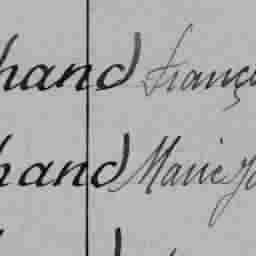 hand Franç
hand Marie Jo